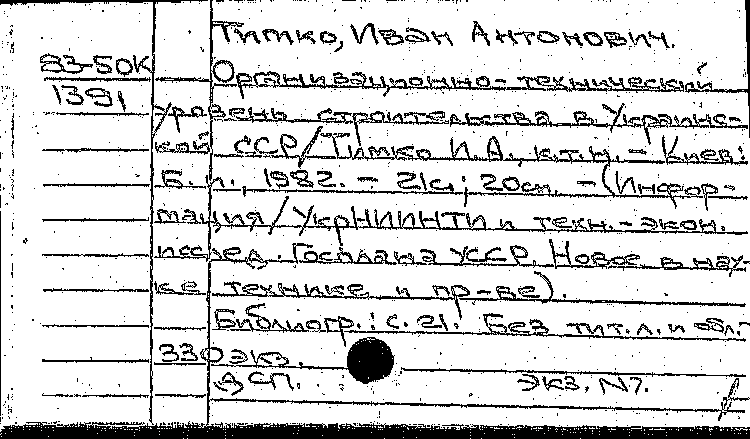 Тимко, Иван Антонович.
83-50К
Организационно-технический
1391
уровень строительства в Украинс-
кой ССР/Тимко И.А., к.т.н. - Киев:
Б.и., 1982. - 21с.; 20см. - (Инфор-
мация/УкрНИИНТИ и техн.-экон.
исслед. Госплана УССР. Новое в нау-
ке технике и пр-ве).
Библиогр.: с. 21. Без тит. л. и обл.
330 экз.
ДСП. экз. N7.